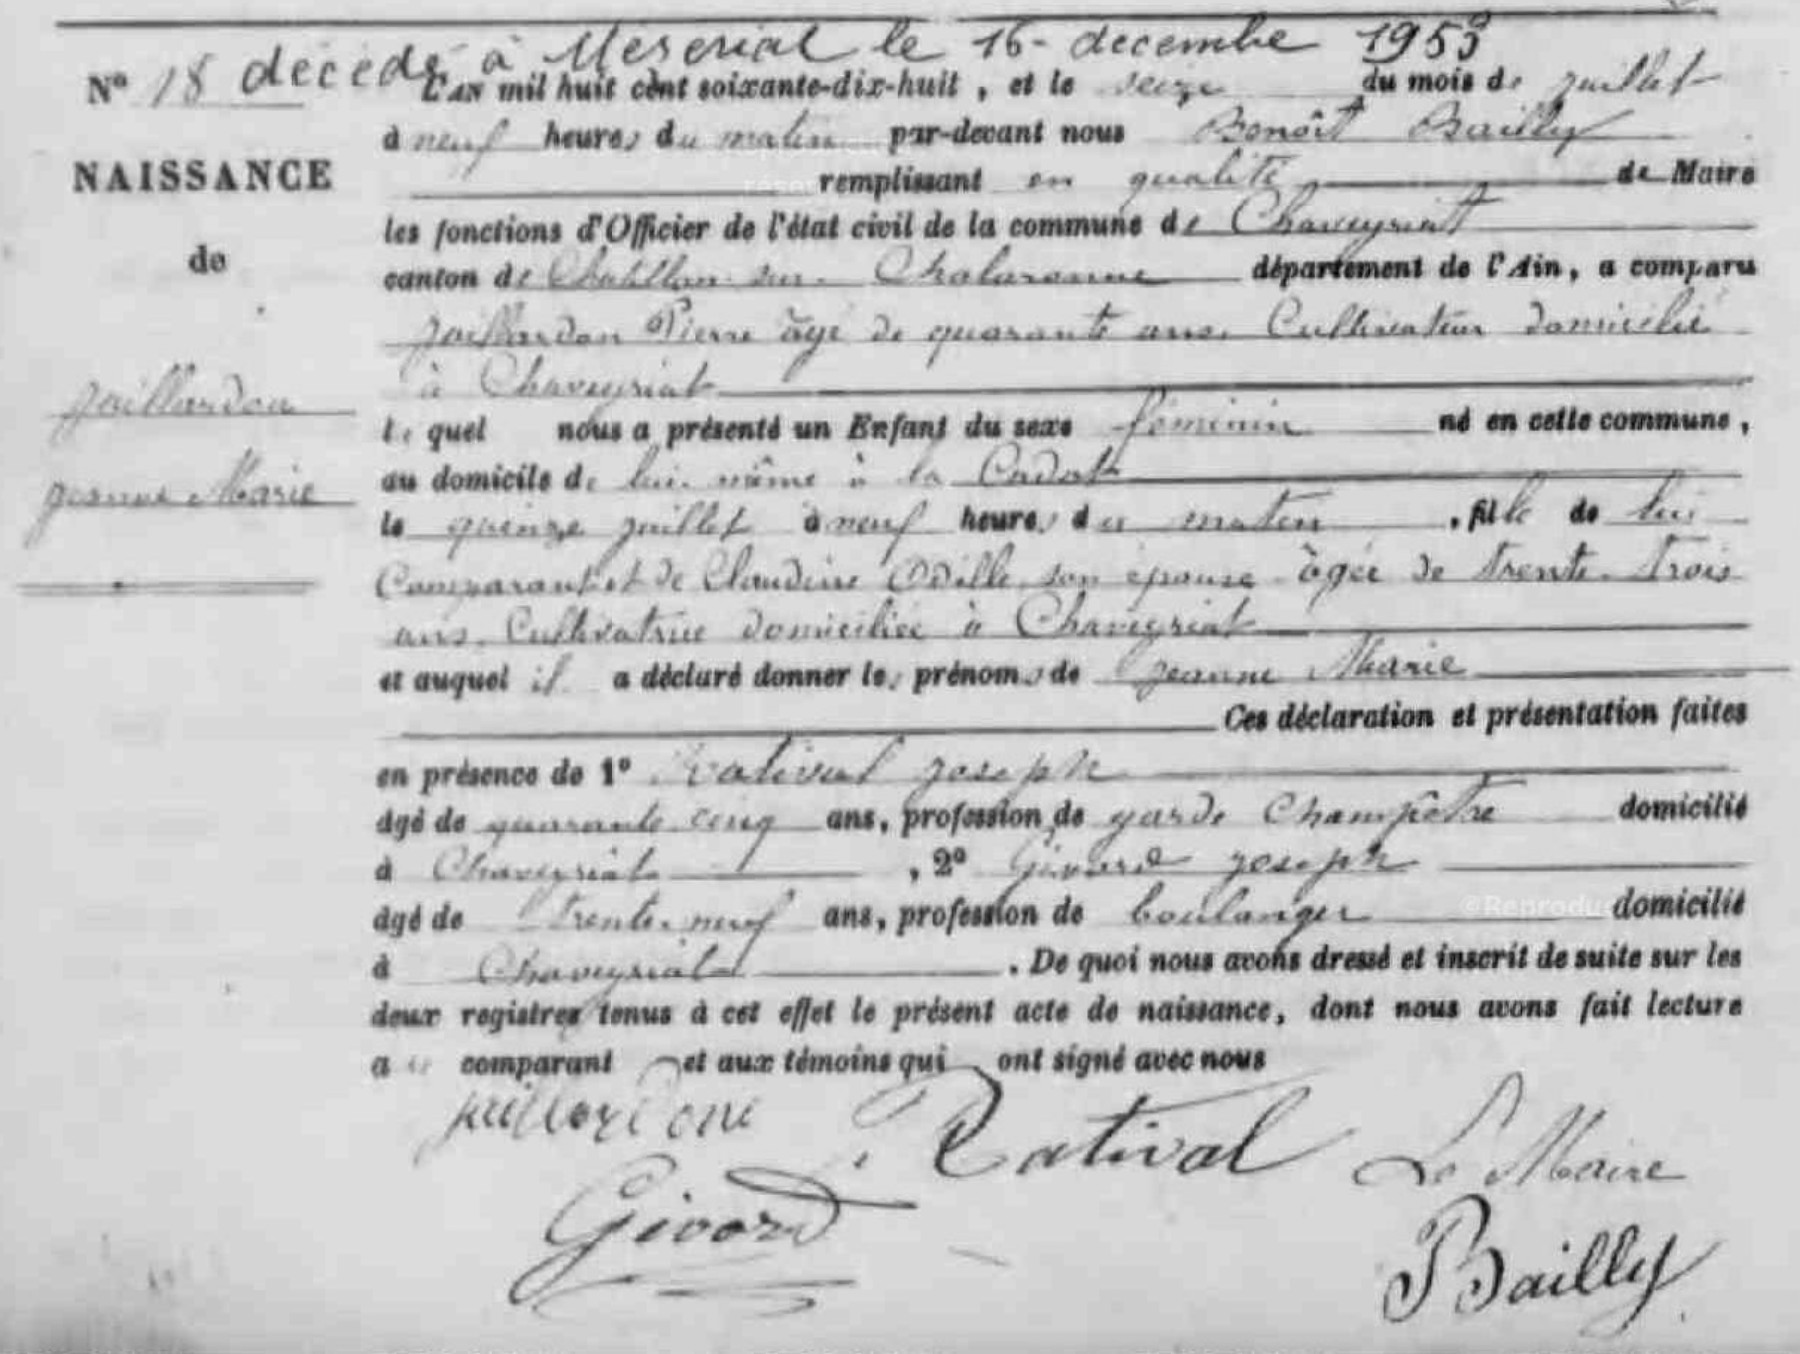 décédé à Mézériat le 16 - décembre 1953
N° 18 L'AN mil huit cent soixante-dix-huit, et le seize du mois de juillet
à neuf heures du matin par-devant nous Benoît Bailly
NAISSANCE
remplissant en qualité de Maire
les fonctions d'Officier de l'état civil de la commune de Chaveyriat
de
canton de Chatillon sur Chalaronne département de l'Ain, a comparu
Jaillardon Pierre âgé de quarante ans. Cultivateur domicilié
à Chaveyriat
Jaillardon
le quel nous a présenté un Enfant du sexe féminin né en cette commune,
au domicile de lui même à la
Jeanne Marie
le quinze juillet à neuf heures du matin, fille de lui
Comparant et de Claudine Odille son épouse âgée de trente trois
ans. Cultivatrice domiciliée à Chaveyriat
et auquel il a déclaré donner les prénoms de Jeanne Marie
Ces déclaration et présentation faites
en présence de 1° Ratival Joseph
âgé de quarante cinq ans, profession de garde Champêtre domicilié
à Chaveyriat, 2° Givord Joseph
âgé de trente neuf ans, profession de boulanger domicilié
©Reprodu
à Chaveyriat. De quoi nous avons dressé et inscrit de suite sur les
deux registres tenus à cet effet le présent acte de naissance, dont nous avons fait lecture
au comparant et aux témoins qui ont signé avec nous
Ratival
Le Maire
Givord
Bailly